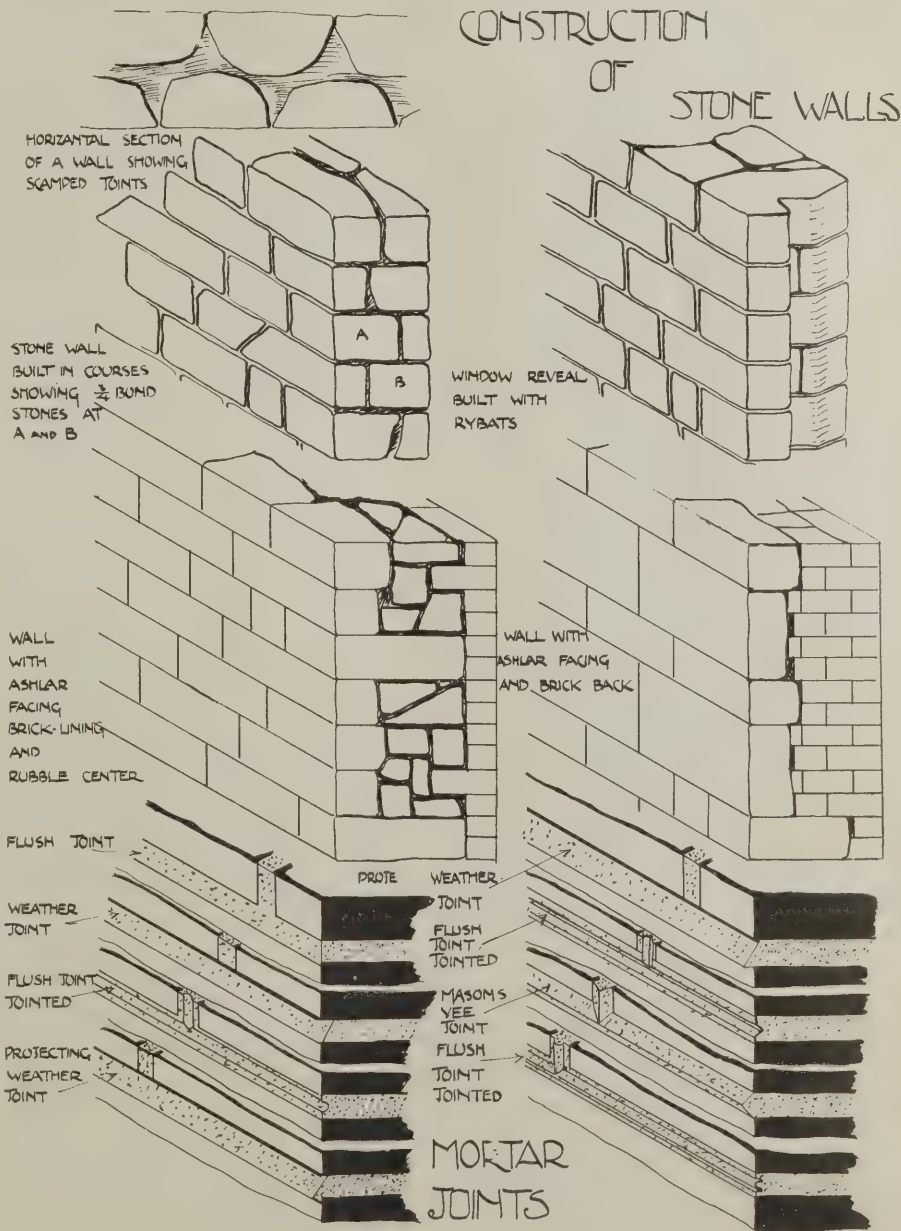 CONSTRUCTION
OF
STONE WALLS
HORIZANTAL SECTION
OF A WALL SHOWING
SCAMPED JOINTS
STONE WALL
BUILT IN COURSES
SHOWING ¾ BOND
STONES AT
A AND B
A
B
WINDOW REVEAL
BUILT WITH
RYBATS
WALL
WITH
ASHLAR
FACING
BRICK-LINING
AND
RUBBLE CENTER
WALL WITH
ASHLAR FACING
AND BRICK BACK
FLUSH JOINT
WEATHER
JOINT
FLUSH JOINT
JOINTED
PROTECTING
WEATHER
JOINT
PROTE
WEATHER
JOINT
FLUSH
JOINT
JOINTED
MASONS
VEE
JOINT
FLUSH
JOINT
JOINTED
MORTAR
JOINTS